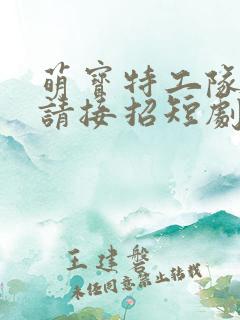 萌寶特工隊
請接招短劇
王建磐
未经同意禁止转载